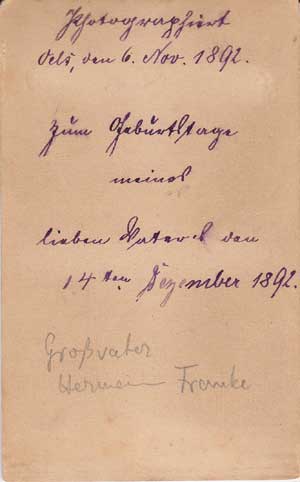 Photographiert
Oels, den 6. Nov. 1892.
Zum Geburtstage
meines
lieben Vaters den
14ten Dezember 1892.
Großvater
Hermann Franke